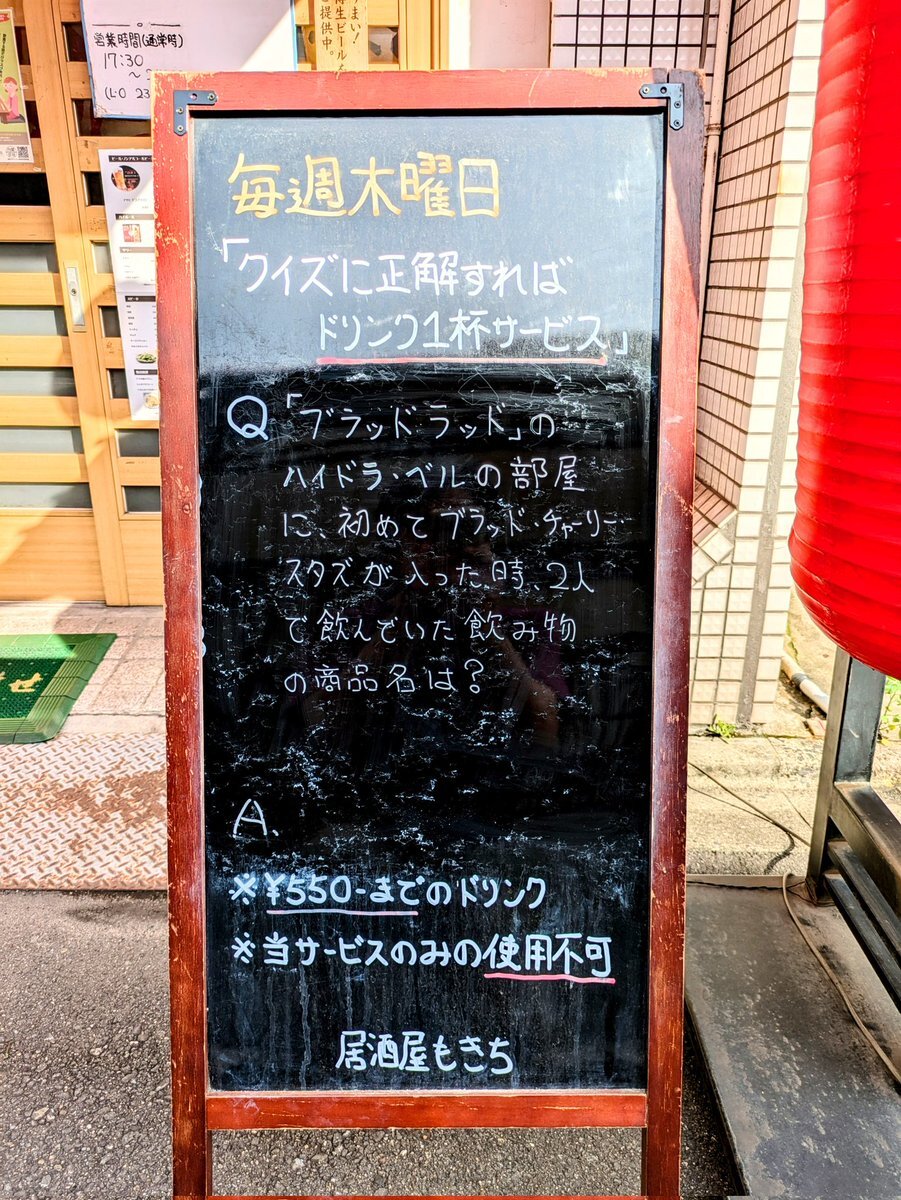 営業時間(通常時)
17:30
(L・O 23
うまい!
生ビール
提供中。
毎週木曜日
「クイズに正解すれば
ドリンク1杯サービス」
Q「ブラッドラッド」の
ハイドラ・ベルの部屋
に、初めてブラッド・チャーリー・
スタズが入った時、2人
で飲んでいた飲み物
の商品名は?
A.
※¥550-までのドリンク
※当サービスのみの使用不可
居酒屋もさち